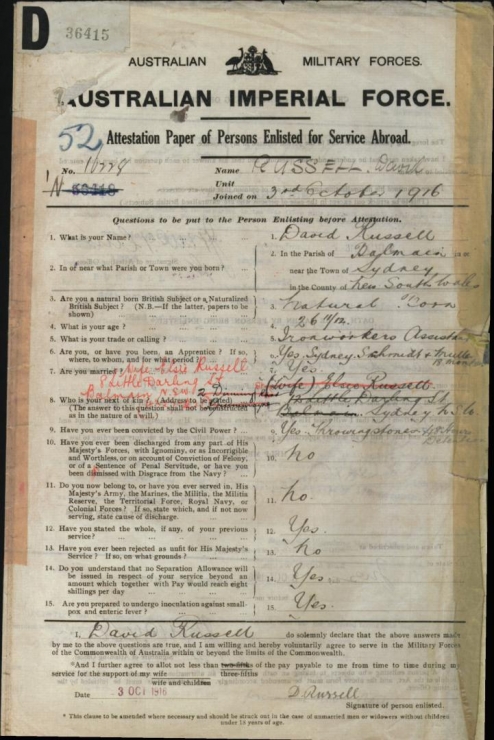 D 36415
AUSTRALIAN MILITARY FORCES.
AUSTRALIAN IMPERIAL FORCE.
52
Attestation Paper of Persons Enlisted for Service Abroad.
No. Name RUSSELL David
N Unit
Joined on 3rd October 1916
Questions to be put to the Person Enlisting before Attestation.
1. What is your Name? ... 1. David Russell
2. In or near what Parish or Town were you born? ... 2. In the Parish of Balmain in
near the Town of Sydney
in the County of New South Wales
3. Are you a natural born British Subject or a Naturalized
British Subject? (N.B.—If the latter, papers to be
shown) 3. Natural Born
4. What is your age? ... 4. 26
5. What is your trade or calling? ... 5. Ironworkers Assistant
6. Are you, or have you been, an Apprentice? If so,
where, to whom, and for what period? 6. Yes. Sydney
7. Are you married? 7. Yes.
Wife Elsie Russell
Little Darling St
Balmain N.S.W.
8. Who is your next of kin? (Address to be stated)
(The answer to this question shall not be construed
as in the nature of a will.) 8. (Wife) Elsie Russell
Little Darling St
Balmain Sydney
9. Have you ever been convicted by the Civil Power? ... 9. Yes. Throwing stones
10. Have you ever been discharged from any part of His
Majesty's Forces, with Ignominy, or as Incorrigible
and Worthless, or on account of Conviction of Felony,
or of a Sentence of Penal Servitude, or have you
been dismissed with Disgrace from the Navy? ... 10. No
11. Do you now belong to, or have you ever served in, His
Majesty's Army, the Marines, the Militia, the Militia
Reserve, the Territorial Force, Royal Navy, or
Colonial Forces? If so, state which, and if not now
serving, state cause of discharge. 11. No.
12. Have you stated the whole, if any, of your previous
service? ... 12. Yes
13. Have you ever been rejected as unfit for His Majesty's
Service? If so, on what grounds? 13. No
14. Do you understand that no Separation Allowance will
be issued in respect of your service beyond an
amount which together with Pay would reach eight
shillings per day ... 14. Yes.
15. Are you prepared to undergo inoculation against small-
pox and enteric fever? ... 15. Yes.
I, David Russell do solemnly declare that the above answers made
by me to the above questions are true, and I am willing and hereby voluntarily agree to serve in the Military Forces
of the Commonwealth of Australia within or beyond the limits of the Commonwealth.
*And I further agree to allot not less than two-fifths of the pay payable to me from time to time during my
three-fifths
service for the support of my wife
wife and children
Date 3 OCT 1916 D. Russell
Signature of person enlisted.
* This clause to be amended where necessary and should be struck out in the case of unmarried men or widowers without children
under 18 years of age.